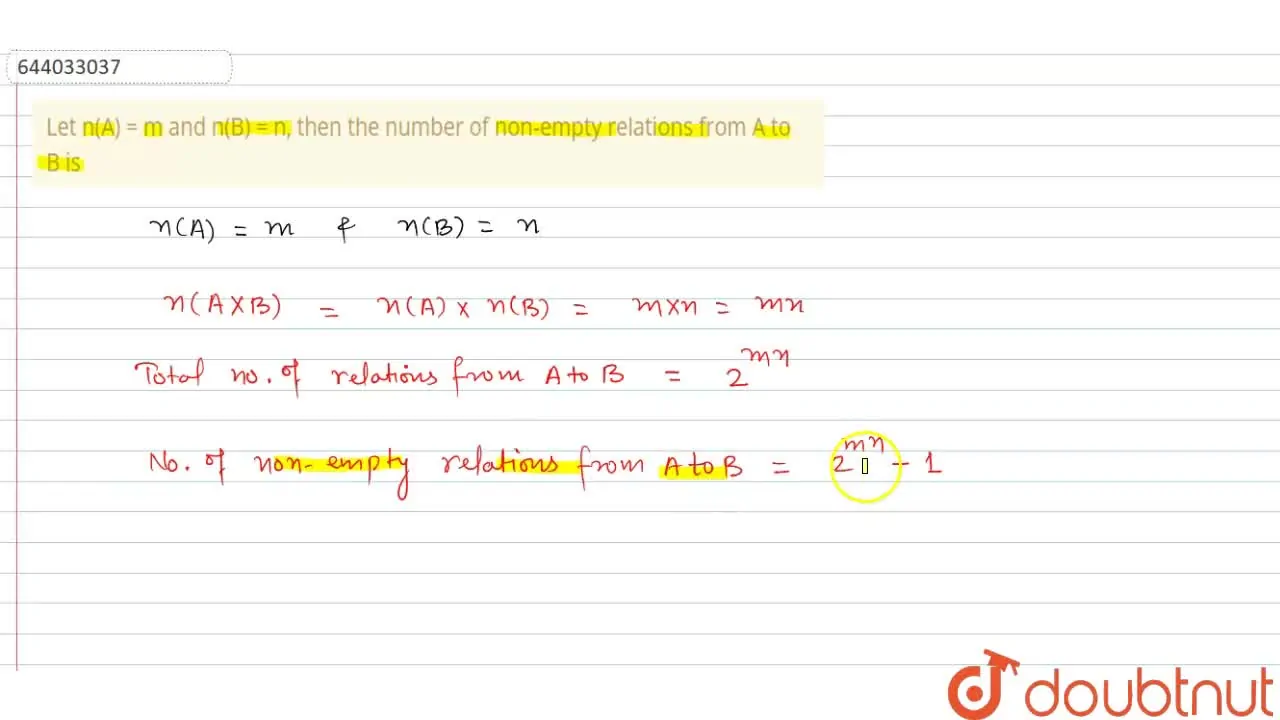 644033037
Let n(A) = m and n(B) = n, then the number of non-empty relations from A to
B is
n(A) = m & n(B) = n
n(A×B) = n(A) × n(B) = m×n = mn
Total no. of relations from A to B = 2^mn
No. of non-empty relations from A to B = 2^mn - 1
doubtnut